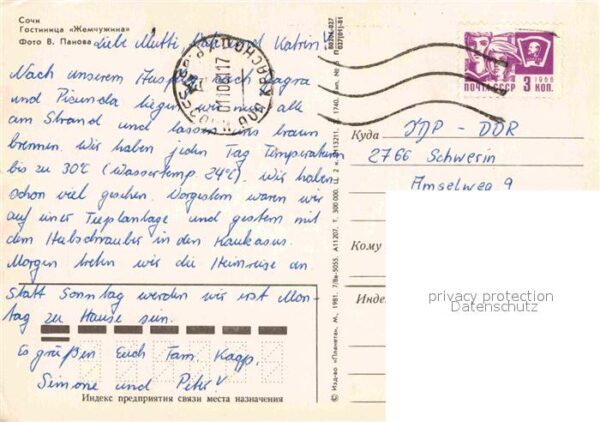 Сочи
Гостиница «Жемчужина»
Фото В. Панова
Liebe Mutti, und Katrin!
Nach unserem nach Gagra
und Pizunda liegen wir nun alle
am Strand und lassen uns braun
brennen. Wir haben jeden Tag Temperaturen
bis zu 30°C (Wassertemp. 24°C). Wir haben
schon viel gesehen. Vorgestern waren wir
auf einer Teeplantage und gestern mit
dem Hubschrauber in den Kaukasus.
Morgen treten wir die Heimreise an.
Statt Sonntag werden wir erst Mon-
tag zu Hause sein.
Es grüßen Euch Fam. Kagp,
Simone und Peter
Индекс предприятия связи места назначения
© Изд-во «Планета», М., 1981.
A11207. Т. 300 000.
ПОЧТА СССР 3 КОП.
1966
Куда
DDR
2766 Schwerin
Amselweg 9
Кому
Инде
privacy protection
Datenschutz